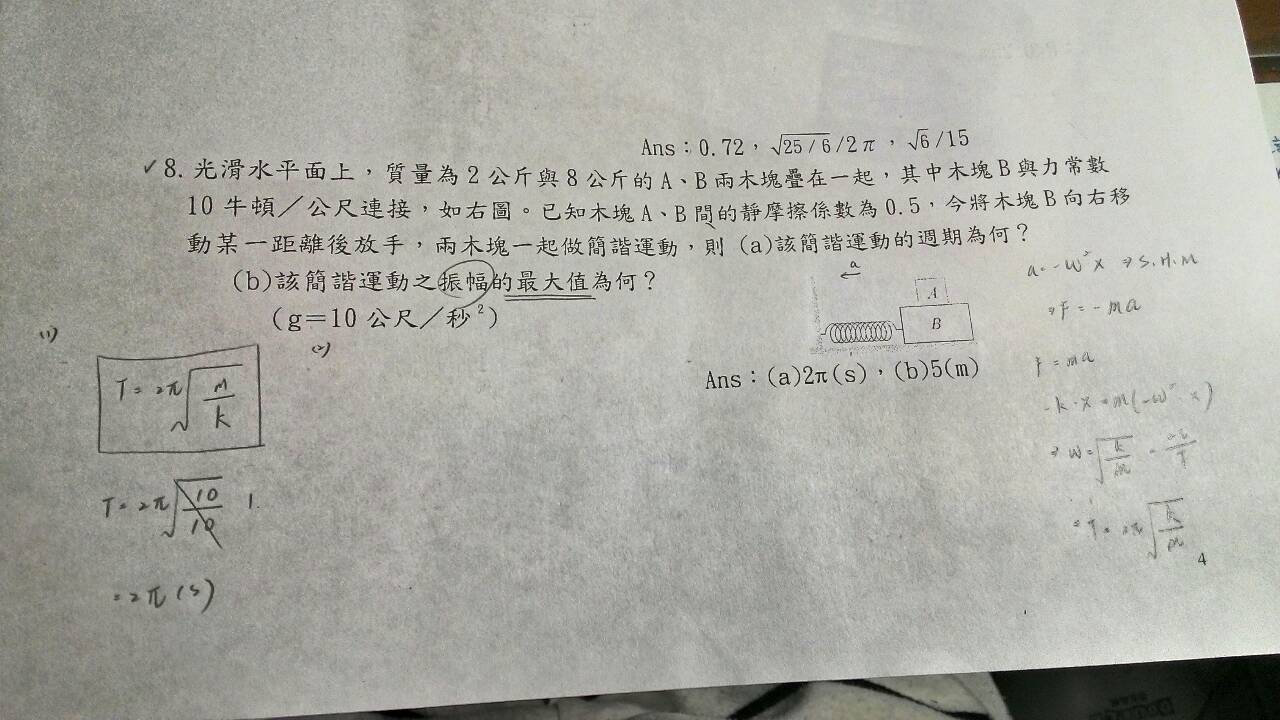 Ans：0.72，√25/6/2π，√6/15
✓8. 光滑水平面上，質量為2公斤與8公斤的A、B兩木塊疊在一起，其中木塊B與力常數
10牛頓／公尺連接，如右圖。已知木塊A、B間的靜摩擦係數為0.5，今將木塊B向右移
動某一距離後放手，兩木塊一起做簡諧運動，則 (a)該簡諧運動的週期為何？
(b)該簡諧運動之振幅的最大值為何？
(g＝10公尺／秒²)
a
A
B
Ans：(a)2π(s)，(b)5(m)
(1)
T = 2π√(m/k)
T = 2π√(10/10) 1
= 2π (s)
(2)
a = -ω²x ⇒ S.H.M
⇒ F = -ma
F = ma
-k·x = m(-ω² x)
⇒ ω = √(k/m) = 2π/T
T = 2π√(k/m)
4